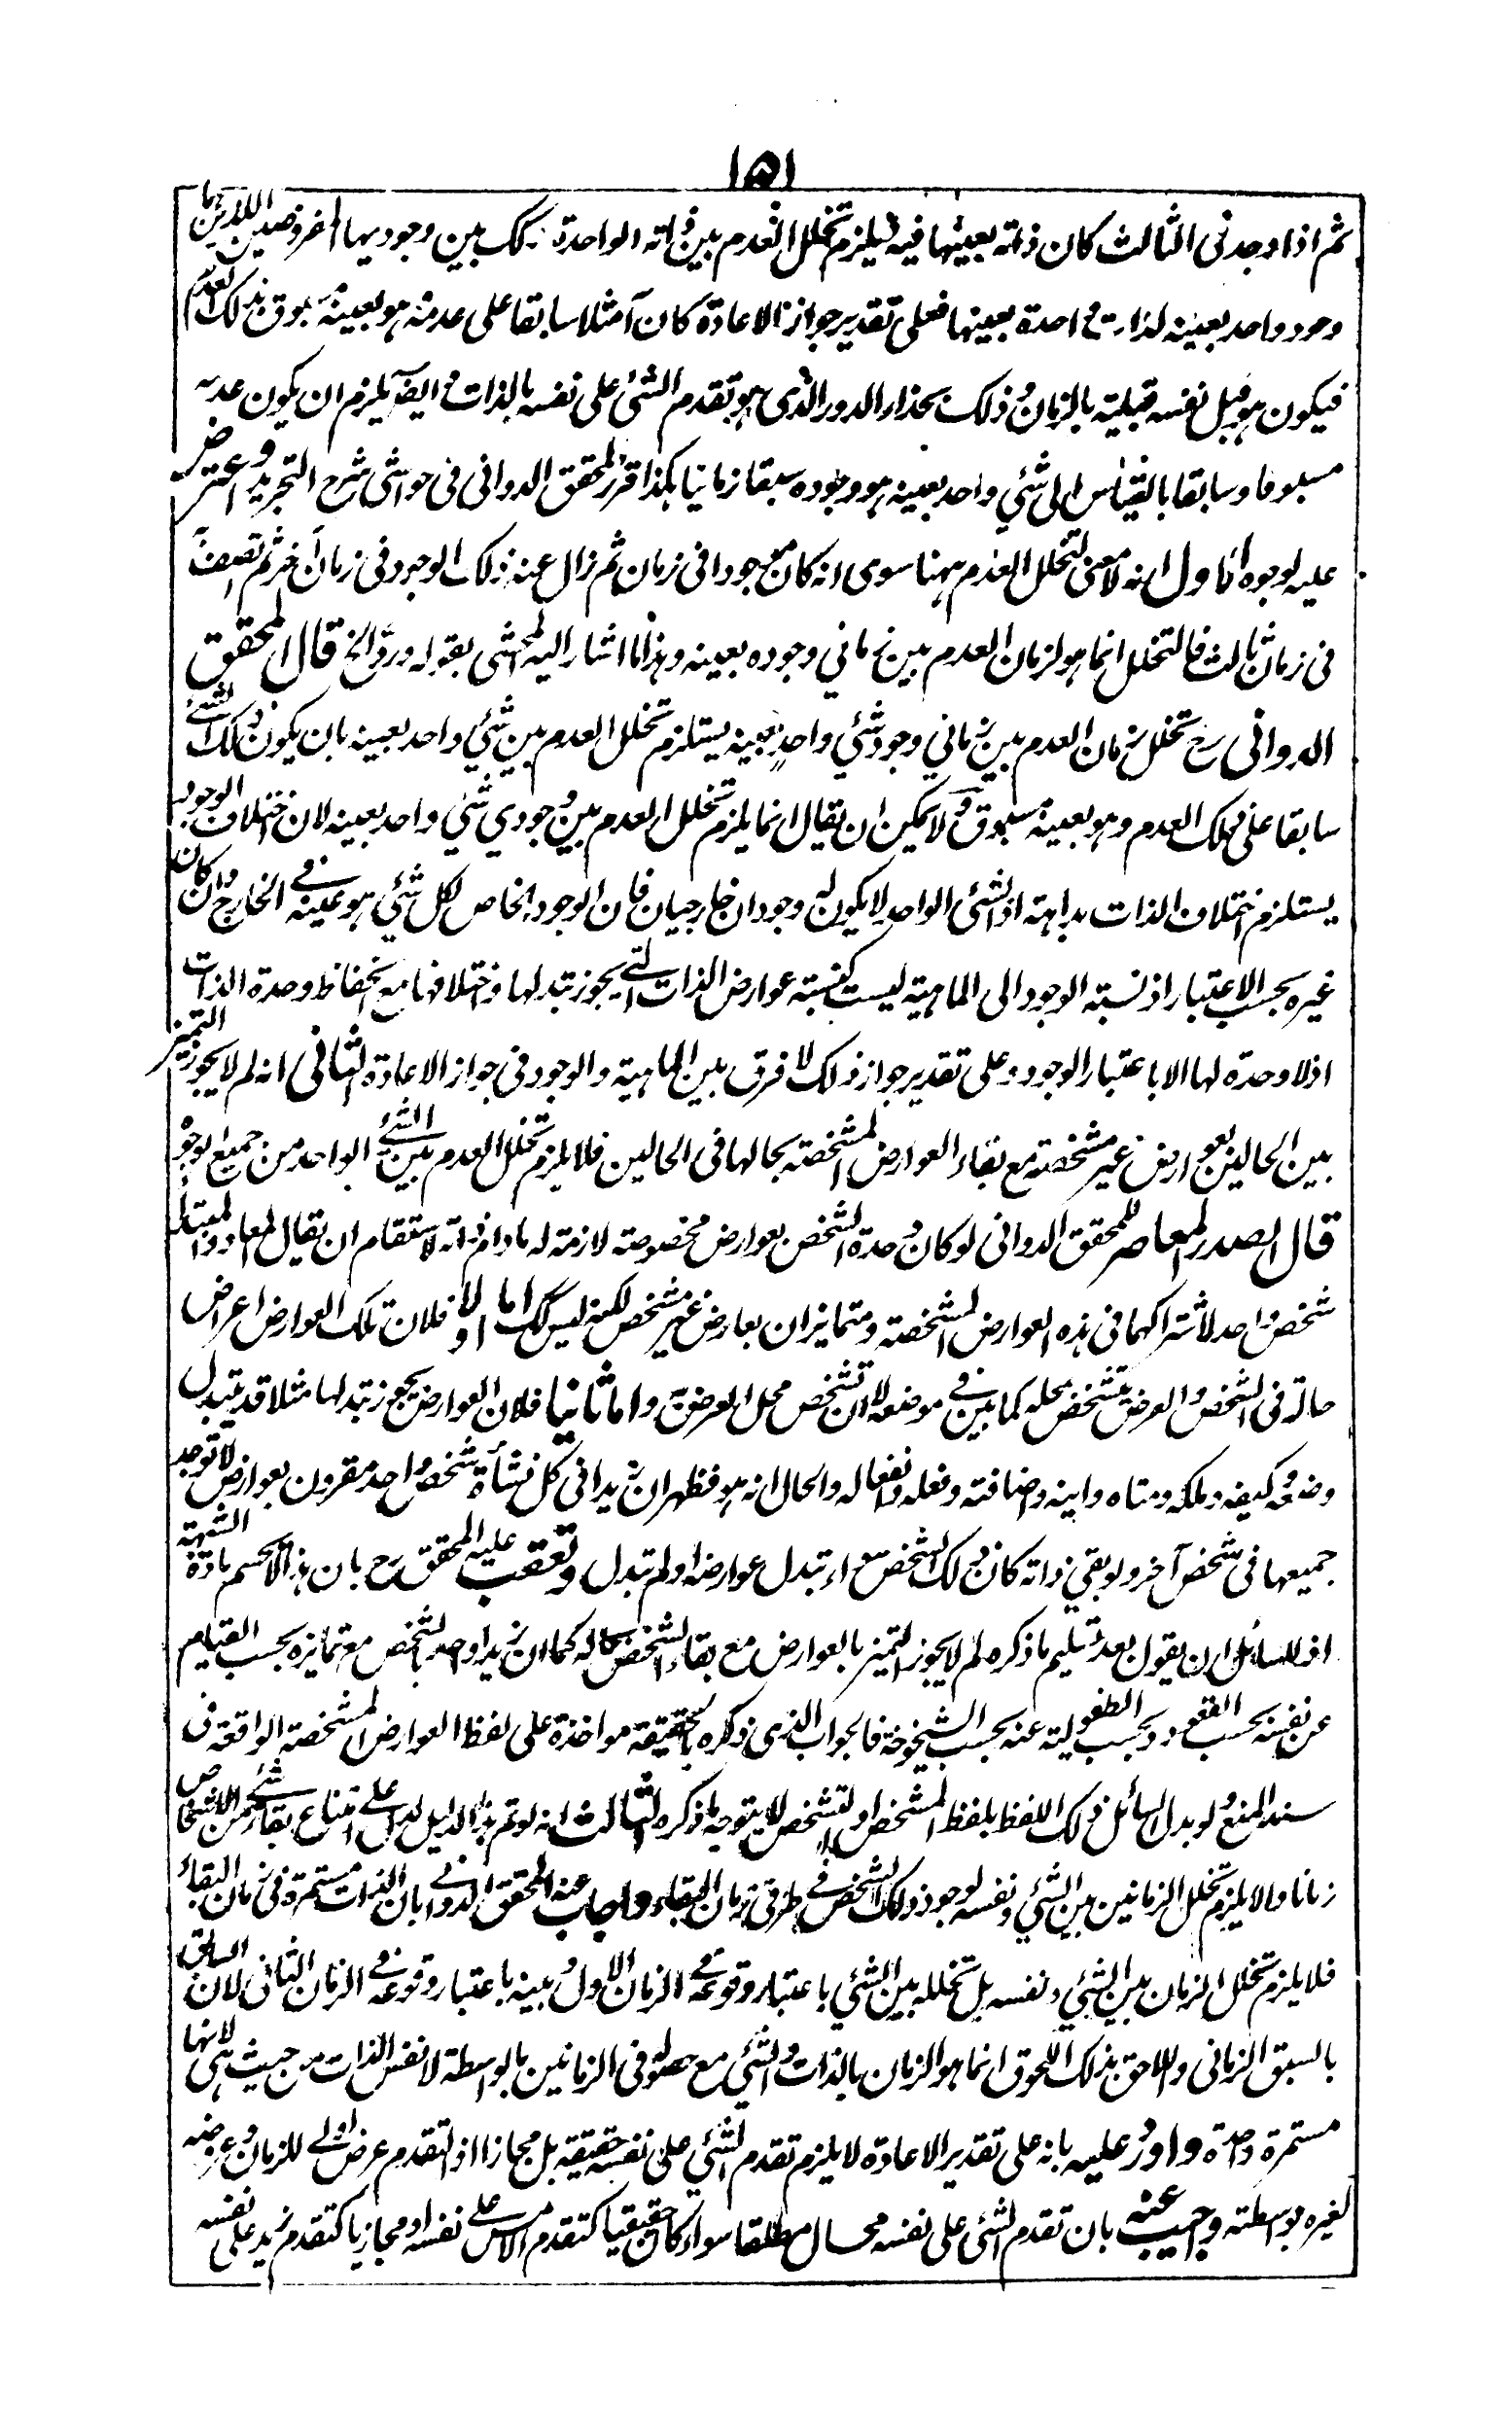 ١٥١
ثم اذا وجد فى الثالث كان ذاته بعينها فيه فيلزم تخلل العدم بين ذاته الواحدة كك بين وجوديها المفروضين اللذين هما
وجود واحد بعينه لذات واحدة بعينها فعلى تقدير جواز الاعادة كان آ مثلا سابقا على عدمه هو بعينه مسبوق بذلك العدم
فيكون هو قبل نفسه قبلية بالزمان و ذلك بحذاء الدور الذى هو تقدم الشئ على نفسه بالذات و ايضا يلزم ان يكون عدمه
مسبوقا و سابقا بالقياس الى شئ واحد بعينه هو وجوده سبقا زمانيا هكذا قرر المحقق الدوانى فى حواشى شرح التجريد و اعترض
عليه لوجوه الاول انه لا معنى لتخلل العدم ههنا سوى انه كان موجودا فى زمان ثم زال عنه ذلك الوجود فى زمان آخر ثم اتصف
فى زمان ثالث فالتخلل انما هو لزمان العدم بين زماني وجوده بعينه و هذا ما اشار اليه المحشى بقوله ورد الخ قال المحقق
الدوانى رح تخلل زمان العدم بين زماني وجود شئي واحد بعينه يستلزم تخلل العدم بين شئي واحد بعينه بان يكون ذلك الشئ
سابقا على ذلك العدم و هو بعينه مسبوق و لا يمكن ان يقال انما يلزم تخلل العدم بين وجودي شئي واحد بعينه لان اختلاف الوجود
يستلزم اختلاف الذات بداهة اذ الشئ الواحد لا يكون له وجودان خارجيان فان الوجود الخاص لكل شئي هو عينه فى الخارج و ان كان
غيره بحسب الاعتبار اذ نسبة الوجود الى الماهية ليست كنسبة عوارض الذات التى يجوز تبدلها و اختلافها مع انحفاظ وحدة الذات
اذ لا وحدة لها الا باعتبار الوجود و على تقدير جواز ذلك لا فرق بين الماهية و الوجود فى جواز الاعادة الثانى انه لم لا يجوز التميز
بين الحالين بعوارض غير مشخصة مع بقاء العوارض المشخصة بحالها فى الحالين فلا يلزم تخلل العدم بين الشئ الواحد من جميع الوجوه
قال الصدر المعاصر للمحقق الدوانى لو كان وحدة الشخص بعوارض مخصوصة لازمة له ما دام ذاته لاستقام ان يقال المعاد و المبتدأ
شخص واحد لاشتراكهما فى هذه العوارض المشخصة و متمايزان بعارض غير مشخص لكنه ليس كك اما اولا فلان تلك العوارض اعراض
حالة فى الشخص و العرض يتشخص بمحله كما بين فى موضعه لا ان تشخص محل العرض به و اما ثانيا فلان العوارض يجوز تبدلها مثلا قد يتبدل
وضعه و كيفه و ملكه و متاه و اينه و اضافته و فعله و انفعاله و الحال انه هو فظهر ان زيدا فى كل نشأة شخص واحد مقرون بعوارض لا توجد
جميعها فى شخص آخر و لو بقي ذاته كان ذلك الشخص سواء تبدل عوارضه او لم تبدل و تعقب عليه المحقق رح بان هذا لا يحسم مادة الشبهة
اذ للسائل ان يقول بعد تسليم ما ذكره لم لا يجوز التميز بالعوارض مع بقاء الشخص بحاله كما ان زيدا واحد بالشخص مع تمايزه بحسب القيام
عن نفسه بحسب القعود و بحسب الطفولية عنه بحسب الشيخوخة فالجواب الذى ذكره بالحقيقة مواخذة على لفظ العوارض المشخصة الواقعة فى
سند المنع و لو بدل السائل ذلك اللفظ بلفظ المشخص او التشخص لا يتوجه ما ذكره الثالث انه لو تم هذا الدليل لدل على امتناع بقاء شئ من الاشخاص
زمانا و الا يلزم تخلل الزمانين بين الشئ و نفسه لوجود ذلك الشخص فى طرفى زمان البقاء و اجاب عنه المحقق الدوانى بان الذات مستمرة فى زمان البقاء
فلا يلزم تخلل الزمان بين الشئي و نفسه بل تخلله بين الشئي باعتبار وقوعه فى الزمان الاول و بينه باعتبار وقوعه فى الزمان الثانى لان السابق
بالسبق الزمانى و اللاحق بذلك اللحوق انما هو الزمان بالذات و الشئي مع حصوله فى الزمانين بالواسطة لا نفس الذات من حيث هى لانها
مستمرة واحدة و اورد عليه بانه على تقدير الاعادة لا يلزم تقدم الشئي على نفسه حقيقة بل مجازا اذ التقدم عرض اولى للزمان و عرضه
لغيره بواسطته و اجيب عنه بان تقدم الشئ على نفسه محال مطلقا سواء كان حقيقيا كتقدم الامس على نفسه او مجازيا كتقدم زيد على نفسه